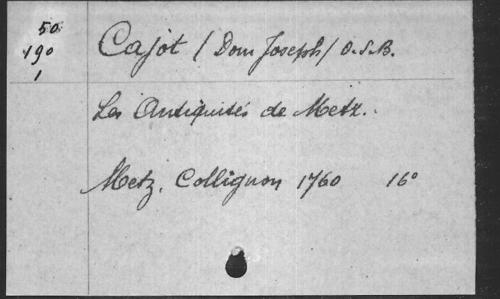 50
190
1
Cajot / Dom Joseph / O.S.B.
Les Antiquités de Metz.
Metz, Collignon 1760 16°